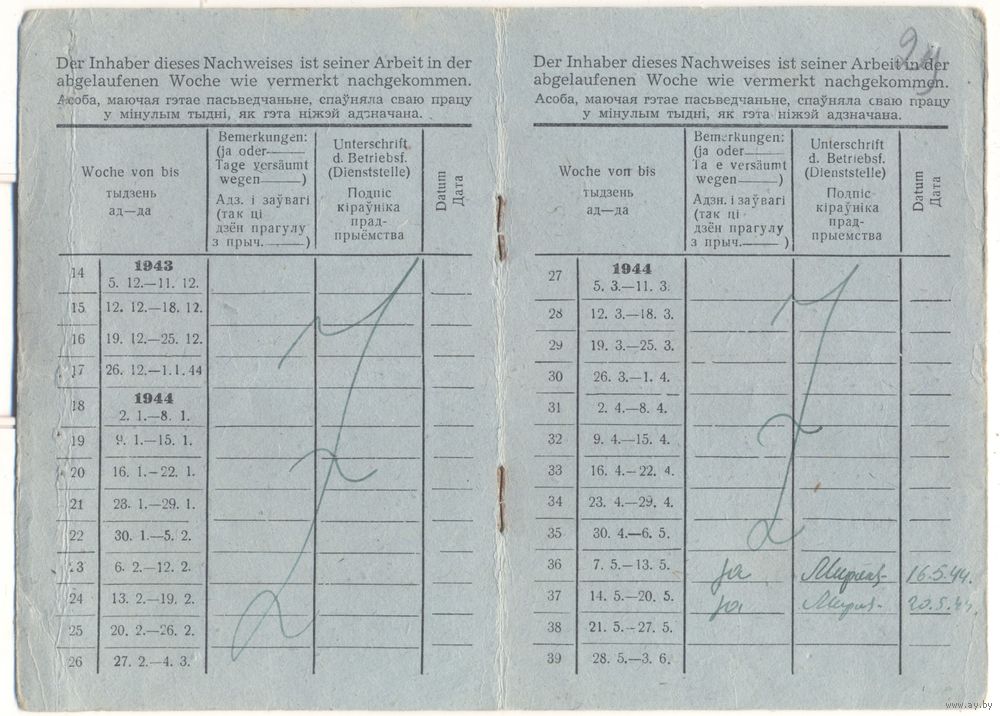 Der Inhaber dieses Nachweises ist seiner Arbeit in der
abgelaufenen Woche wie vermerkt nachgekommen.
Асоба, маючая гэтае пасьведчаньне, спаўняла сваю працу
у мінулым тыдні, як гэта ніжэй адзначана.
Woche von bis
тыдзень
ад—да
Bemerkungen:
(ja oder——
Tage versäumt
wegen——)
Адз. і заўвагі
(так ці
дзён прагулу
з прыч.——)
Unterschrift
d. Betriebsf.
(Dienststelle)
Подпіс
кіраўніка
прад-
прыёмства
Datum
Дата
14 1943
5. 12.—11. 12.
15 12. 12.—18. 12.
16 19. 12.—25. 12.
17 26. 12.—1.1.44
18 1944
2. 1.—8. 1.
19 9. 1.—15. 1.
20 16. 1.—22. 1.
21 23. 1.—29. 1.
22 30. 1.—5. 2.
23 6. 2.—12. 2.
24 13. 2.—19. 2.
25 20. 2.—26. 2.
26 27. 2.—4. 3.
Der Inhaber dieses Nachweises ist seiner Arbeit in der
abgelaufenen Woche wie vermerkt nachgekommen.
Асоба, маючая гэтае пасьведчаньне, спаўняла сваю працу
у мінулым тыдні, як гэта ніжэй адзначана.
Woche von bis
тыдзень
ад—да
Bemerkungen:
(ja oder——
Ta e versäumt
wegen——)
Адзн. і заўвагі
(так ці
дзён прагулу
з прыч.——)
Unterschrift
d. Betriebsf.
(Dienststelle)
Подпіс
кіраўніка
прад-
прыемства
Datum
Дата
27 1944
5. 3.—11. 3.
28 12. 3.—18. 3.
29 19. 3.—25. 3.
30 26. 3.—1. 4.
31 2. 4.—8. 4.
32 9. 4.—15. 4.
33 16. 4.—22. 4.
34 23. 4.—29. 4.
35 30. 4.—6. 5.
36 7. 5.—13. 5. ja 16.5.44.
37 14. 5.—20. 5. ja 20.5.44.
38 21. 5.—27. 5.
39 28. 5.—3. 6.
www.ay.by